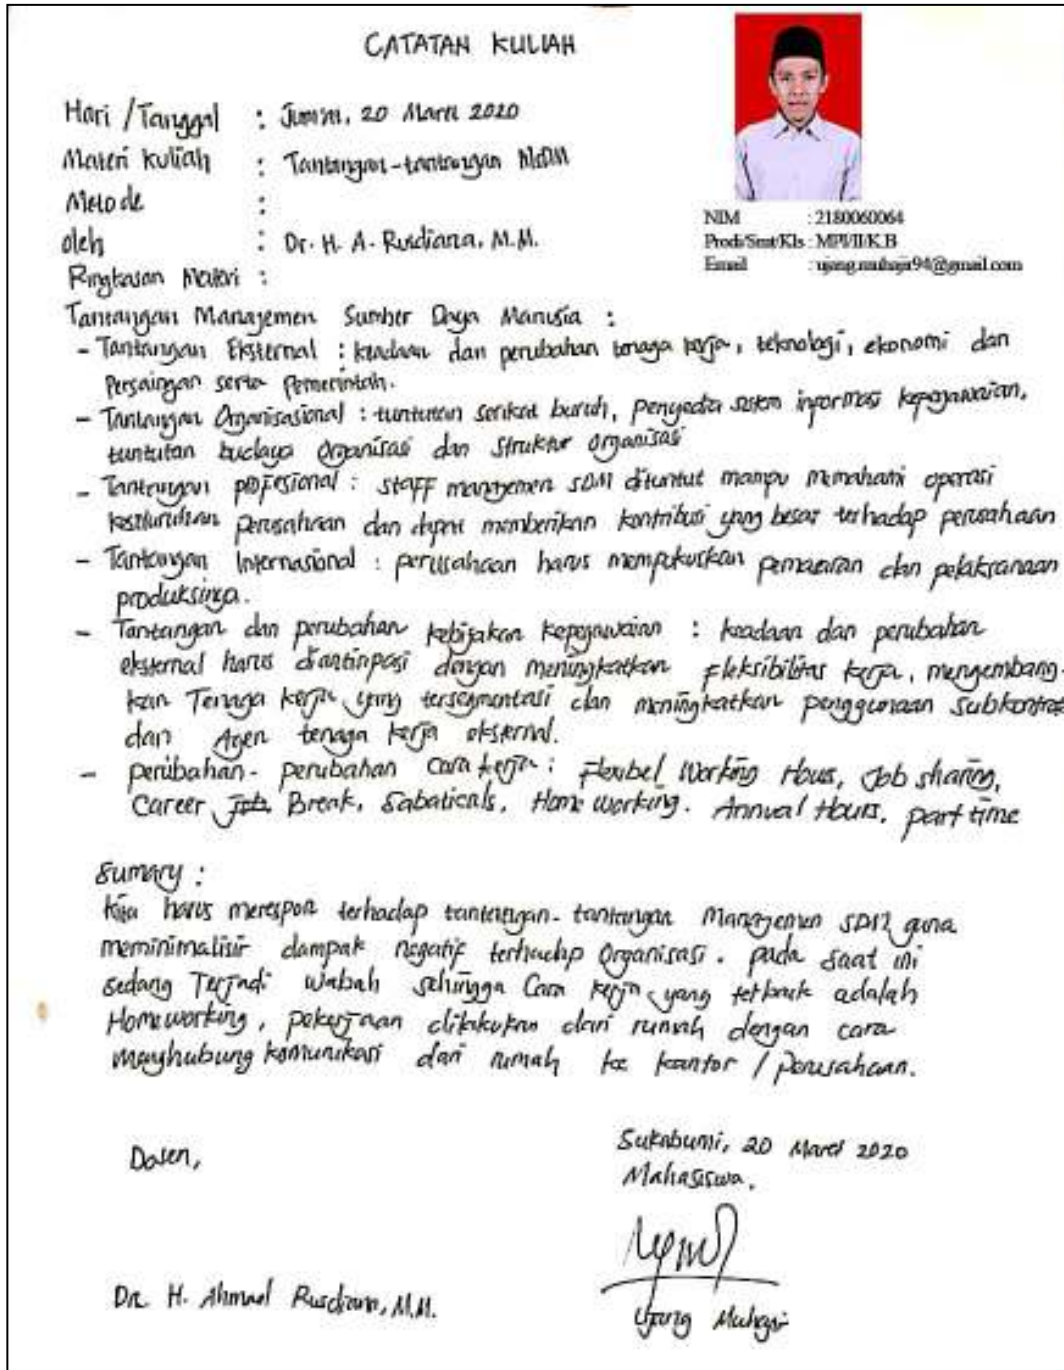 CATATAN KULIAH
Hari / Tanggal : Jum'at, 20 Maret 2020
Materi kuliah : Tantangan-tantangan MSDM
Metode :
oleh : Dr. H. A. Rusdiana, M.M.
NIM : 2180060064
Prodi/Smt/Kls : MPI/II/K.B
Email : ujang.muhajir94@gmail.com
Ringkasan Materi :
Tantangan Manajemen Sumber Daya Manusia :
- Tantangan Eksternal : keadaan dan perubahan tenaga kerja, teknologi, ekonomi dan
Persaingan serta Pemerintah.
- Tantangan Organisasional : tuntutan serikat buruh, penyedia sistem informasi kepegawaian,
tuntutan budaya organisasi dan struktur organisasi
- Tantangan profesional : staff manajemen SDM dituntut mampu memahami operasi
keseluruhan perusahaan dan dapat memberikan kontribusi yang besar terhadap perusahaan
- Tantangan Internasional : perusahaan harus memfokuskan pemasaran dan pelaksanaan
produksinya.
- Tantangan dan perubahan kebijakan kepegawaian : keadaan dan perubahan
eksternal harus diantisipasi dengan meningkatkan fleksibilitas kerja, mengembang-
kan Tenaga kerja yang tersegmentasi dan meningkatkan penggunaan subkontrak
dan Agen tenaga kerja eksternal.
- perubahan - perubahan cara kerja : Flexibel Working Hous, Job sharing,
Career Break, Sabaticals, Home working. Annual Hours, part time
Sumary :
Kita harus merespon terhadap tantangan-tantangan Manajemen SDM guna
meminimalisir dampak negatif terhadap organisasi. pada saat ini
sedang Terjadi wabah sehingga Cara kerja yang terbaik adalah
Homeworking, pekerjaan dilakukan dari rumah dengan cara
menghubung komunikasi dari rumah ke kantor / perusahaan.
Sukabumi, 20 Maret 2020
Dosen,
Mahasiswa.
Dr. H. Ahmad Rusdiana, M.M.
Ujang Muhajir